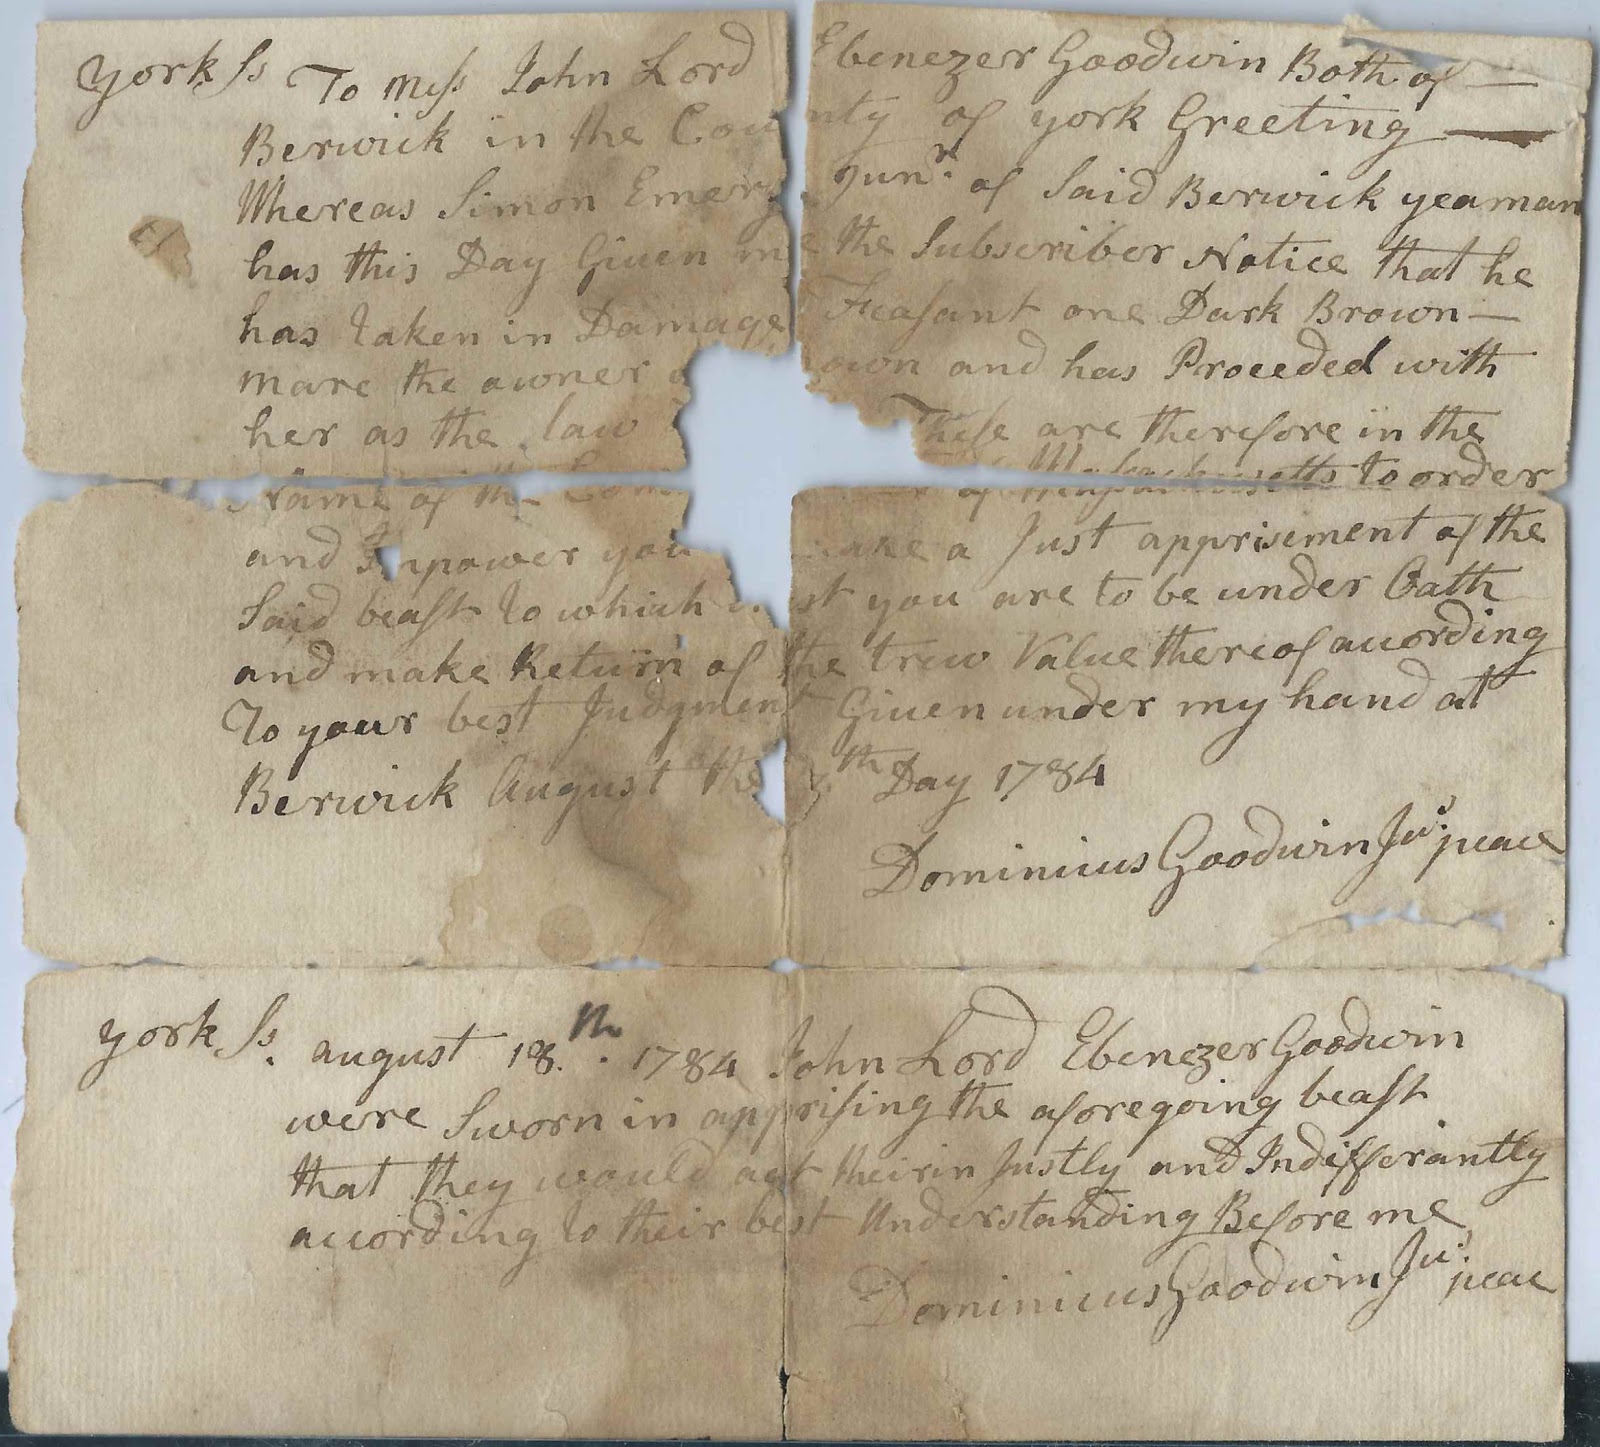 york Ss To Mess John Lord Ebenezer Goodwin Both of —
Berwick in the County of york Greeting —
Whereas Simon Emery Junr. of Said Berwick yeaman
has this Day Giuen me the Subscriber Notice that he
has taken in Damage Feasant one Dark Brown —
mare the owner own and has Proceeded with
her as the law These are therefore in the
Name of the of Massachusetts to order
and Impower you make a Just apprisement of the
Said beast to which you are to be under Oath
and make Return of the trew Value thereof according
To your best Judgment Giuen under my hand at
Berwick August the th Day 1784
Dominicus Goodwin Jus: peace
york Ss. august 18th. 1784 John Lord Ebenezer Goodwin
were Sworn in apprising the aforegoing beast
that they would act theirin Justly and Indifferantly
according to their best Understanding Before me
Dominicus Goodwin Jus: peac